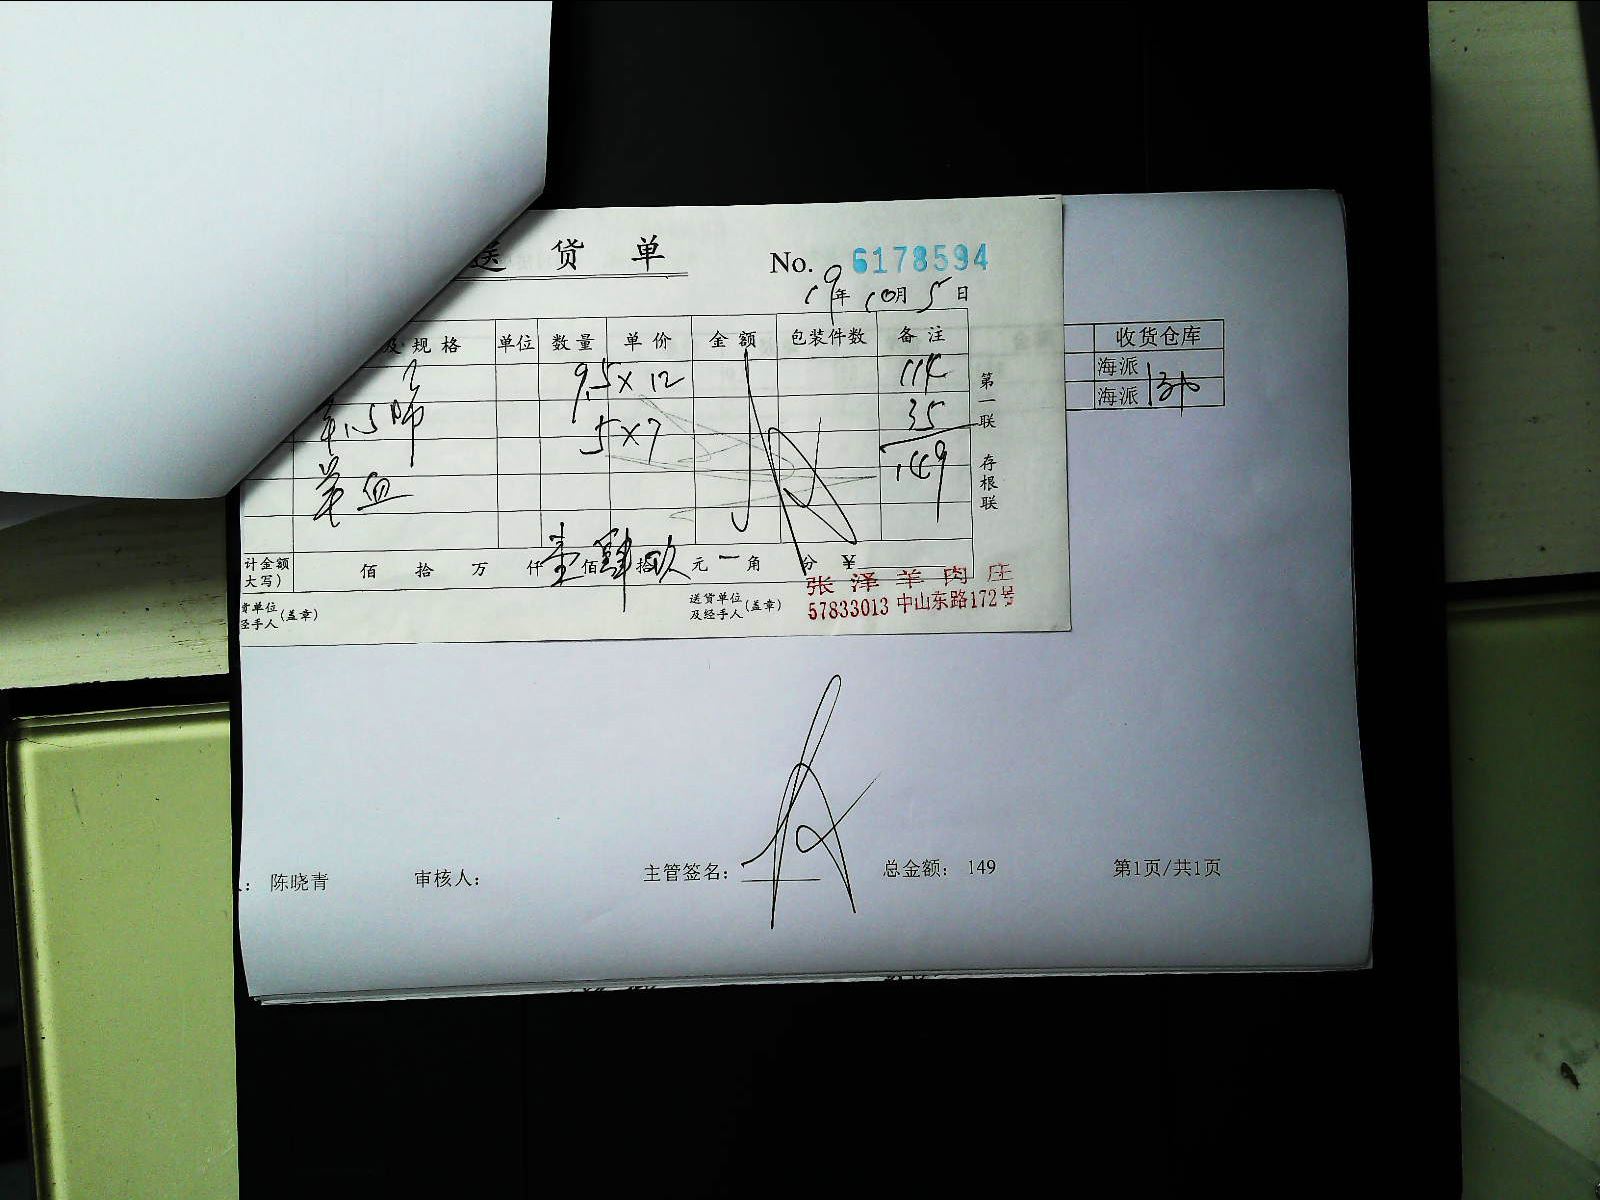 送 货 单 No. 6178594
19年10月5日
及规格 单位 数量 单价 金额 包装件数 备注 收货仓库
9.5×12 114 海派
5×7 35 海派
羊血 149
第一联 存根联
计金额
大写) 佰 拾 万 仟 壹 佰 肆 拾 玖 元 一 角 分 ¥
张泽羊肉庄
货单位
经手人 (盖章) 送货单位
及经手人 (盖章) 57833013 中山东路172号
: 陈晓青 审核人: 主管签名: 总金额: 149 第1页/共1页